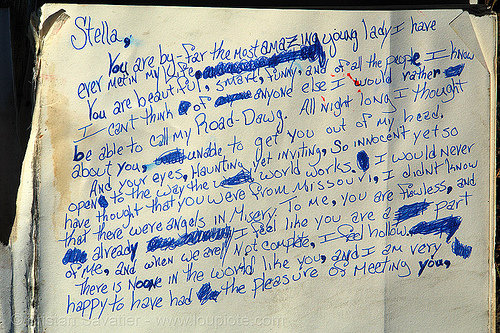 Stella,
You are by-far the most amazing young lady I have
ever met in my life.
You are beautiful, smart, funny, and of all the people I know
I can't think of anyone else I would rather
be able to call my Road-Dawg. All night long I thought
about you, unable to get you out of my head.
And your eyes, Haunting yet inviting, so innocent yet so
open to the way the world works. I would never
have thought that you were from Missouri, I didn't know
that there were angels in Misery. To me, you are flawless, and
already I feel like you are a part
of me, and when we aren't complete, I feel hollow.
There is noone in the world like you, and I am very
happy to have had the pleasure of meeting you,